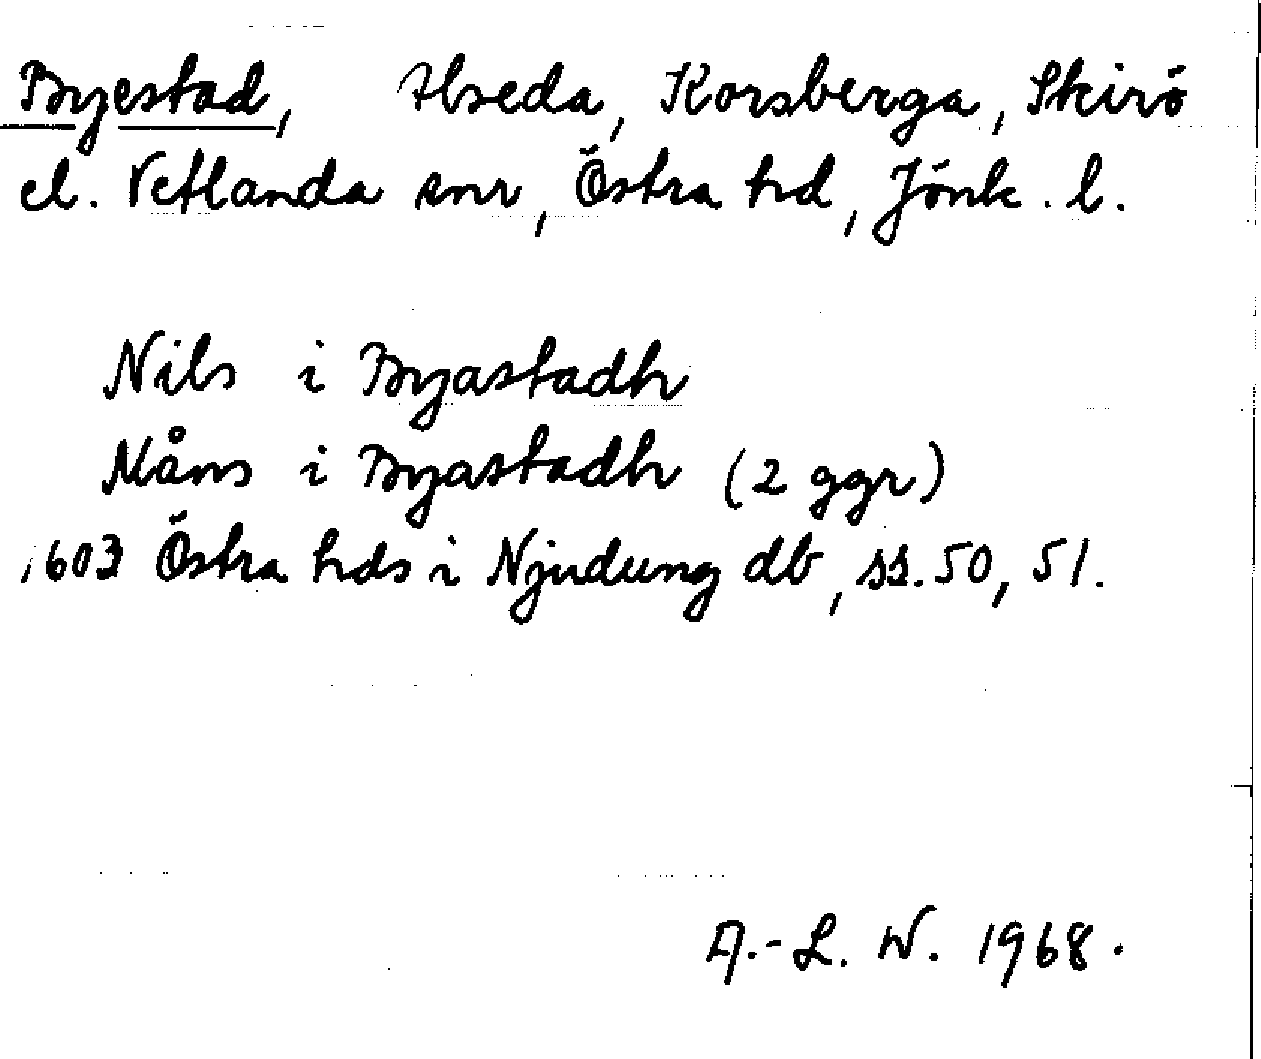 Byestad, Alseda, Korsberga, Skirö
el. Vetlanda snr, Östra hd, Jönk. l.
Nils i Byastadh
Måns i Byastadh (2 ggr)
1603 Östra hds i Njudung db, ss. 50, 51.
A.-L. W. 1968.